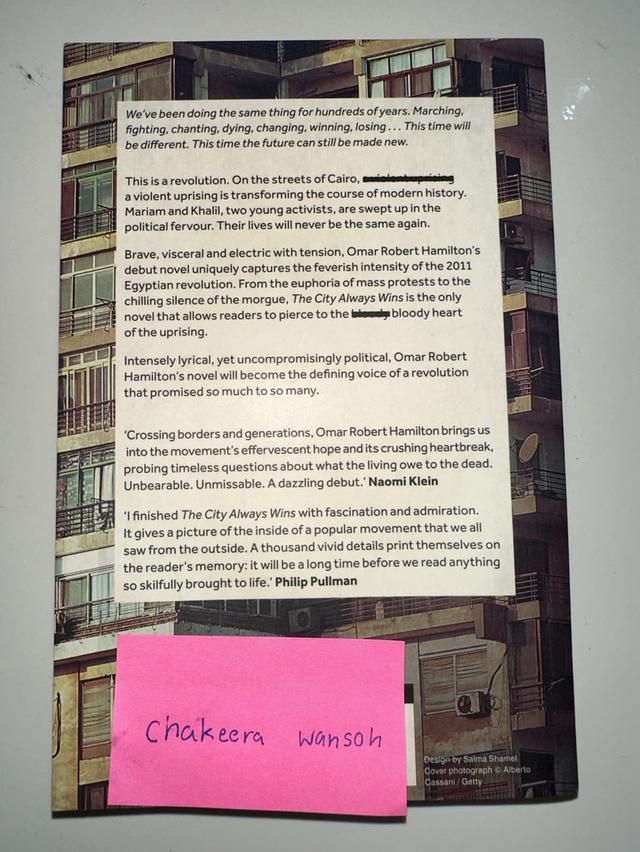 We've been doing the same thing for hundreds of years. Marching,
fighting, chanting, dying, changing, winning, losing... This time will
be different. This time the future can still be made new.
This is a revolution. On the streets of Cairo, a violent uprising
a violent uprising is transforming the course of modern history.
Mariam and Khalil, two young activists, are swept up in the
political fervour. Their lives will never be the same again.
Brave, visceral and electric with tension, Omar Robert Hamilton's
debut novel uniquely captures the feverish intensity of the 2011
Egyptian revolution. From the euphoria of mass protests to the
chilling silence of the morgue, The City Always Wins is the only
novel that allows readers to pierce to the bloody bloody heart
of the uprising.
Intensely lyrical, yet uncompromisingly political, Omar Robert
Hamilton's novel will become the defining voice of a revolution
that promised so much to so many.
'Crossing borders and generations, Omar Robert Hamilton brings us
into the movement's effervescent hope and its crushing heartbreak,
probing timeless questions about what the living owe to the dead.
Unbearable. Unmissable. A dazzling debut.' Naomi Klein
'I finished The City Always Wins with fascination and admiration.
It gives a picture of the inside of a popular movement that we all
saw from the outside. A thousand vivid details print themselves on
the reader's memory: it will be a long time before we read anything
so skilfully brought to life.' Philip Pullman
Chakeera wansoh
Design by Salma Shamel
Cover photograph © Alberto
Cassani / Getty